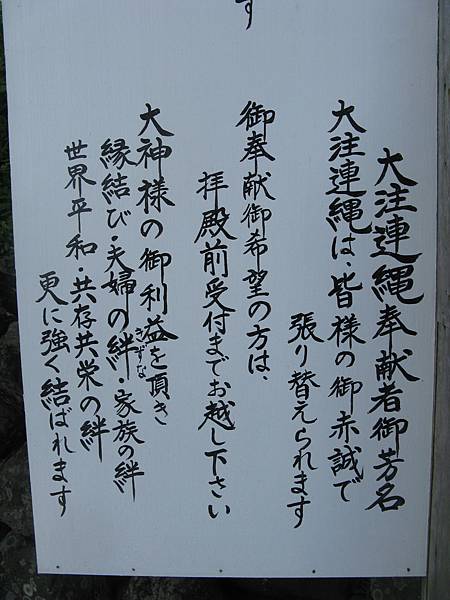 す
大注連縄奉献者御芳名
大注連縄は、皆様の御赤誠で
張り替えられます
御奉献御希望の方は、
拝殿前受付までお越し下さい
大神様の御利益を頂き
縁結び・夫婦の絆・家族の絆
きずな
世界平和・共存共栄の絆
更に強く結ばれます